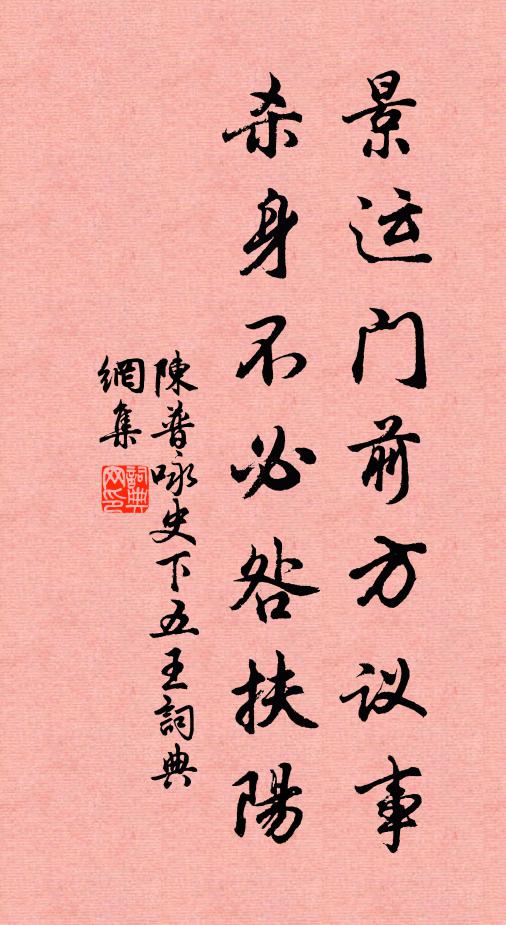 景运门前方议事
杀身不必咎扶陽
陳普咏史下五王詞典
網集
詞典网印